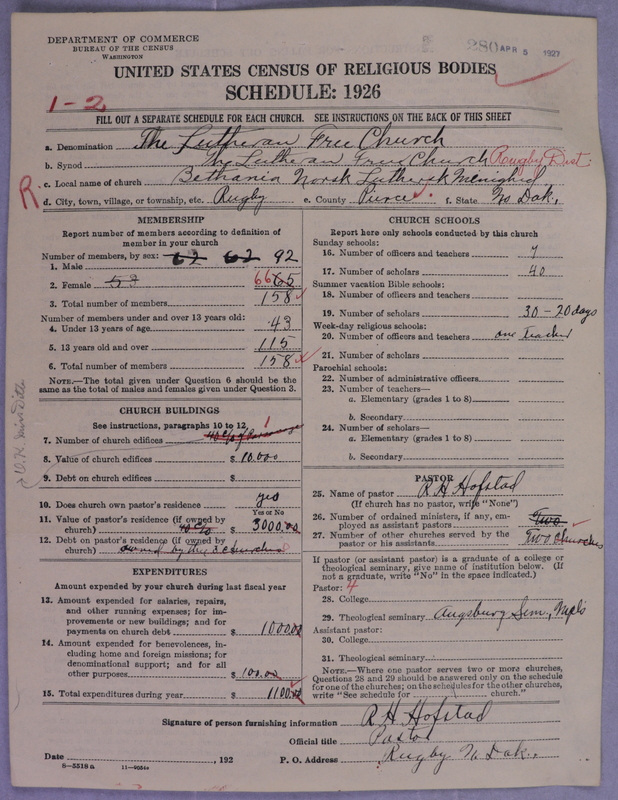 DEPARTMENT OF COMMERCE
BUREAU OF THE CENSUS
WASHINGTON
280 APR 5 1927
UNITED STATES CENSUS OF RELIGIOUS BODIES
SCHEDULE: 1926
1-2
FILL OUT A SEPARATE SCHEDULE FOR EACH CHURCH. SEE INSTRUCTIONS ON THE BACK OF THIS SHEET
a. Denomination The Lutheran Free Church
b. Synod The Lutheran Free Church Rugby Dist.
R c. Local name of church Bethania Norsk Luthersk Menighed
d. City, town, village, or township, etc. Rugby e. County Pierce f. State No Dak.
MEMBERSHIP
Report number of members according to definition of
member in your church
Number of members, by sex: 62 62 92
1. Male
2. Female 53 66 65
3. Total number of members 158
Number of members under and over 13 years old:
4. Under 13 years of age 43
5. 13 years old and over 115
6. Total number of members 158
NOTE.—The total given under Question 6 should be
the same as the total of males and females given under Question 3.
CHURCH BUILDINGS
See instructions, paragraphs 10 to 12.
7. Number of church edifices 1
8. Value of church edifices $ 10.000
9. Debt on church edifices $
10. Does church own pastor's residence yes
Yes or No
11. Value of pastor's residence (if owned by
church) 40% $ 3000.00
12. Debt on pastor's residence (if owned by
church) owned by the 3 churches
EXPENDITURES
Amount expended by your church during last fiscal year
13. Amount expended for salaries, repairs,
and other running expenses; for im-
provements or new buildings; and for
payments on church debt $ 1000.00
14. Amount expended for benevolences, in-
cluding home and foreign missions; for
denominational support; and for all
other purposes $ 100.00
15. Total expenditures during year $ 1100.00
CHURCH SCHOOLS
Report here only schools conducted by this church
Sunday schools:
16. Number of officers and teachers 7
17. Number of scholars 40
Summer vacation Bible schools:
18. Number of officers and teachers
19. Number of scholars 30 - 20 days
Week-day religious schools:
20. Number of officers and teachers one Teacher
21. Number of scholars
Parochial schools:
22. Number of administrative officers
23. Number of teachers—
a. Elementary (grades 1 to 8)
b. Secondary
24. Number of scholars—
a. Elementary (grades 1 to 8)
b. Secondary
PASTOR
25. Name of pastor R H Hofstad
(If church has no pastor, write "None")
26. Number of ordained ministers, if any, em-
ployed as assistant pastors Two
27. Number of other churches served by the
pastor or his assistants Two churches
If pastor (or assistant pastor) is a graduate of a college or
theological seminary, give name of institution below. (If
not a graduate, write "No" in the space indicated.)
Pastor: 4
28. College
29. Theological seminary Augsburg Sem., Mpls
Assistant pastor:
30. College
31. Theological seminary
NOTE.—Where one pastor serves two or more churches,
Questions 28 and 29 should be answered only on the schedule
for one of the churches; on the schedules for the other churches,
write "See schedule for church."
Signature of person furnishing information R H Hofstad
Official title Pastor
Date , 192 P. O. Address Rugby No Dak.,
8—5518 a 11—9054